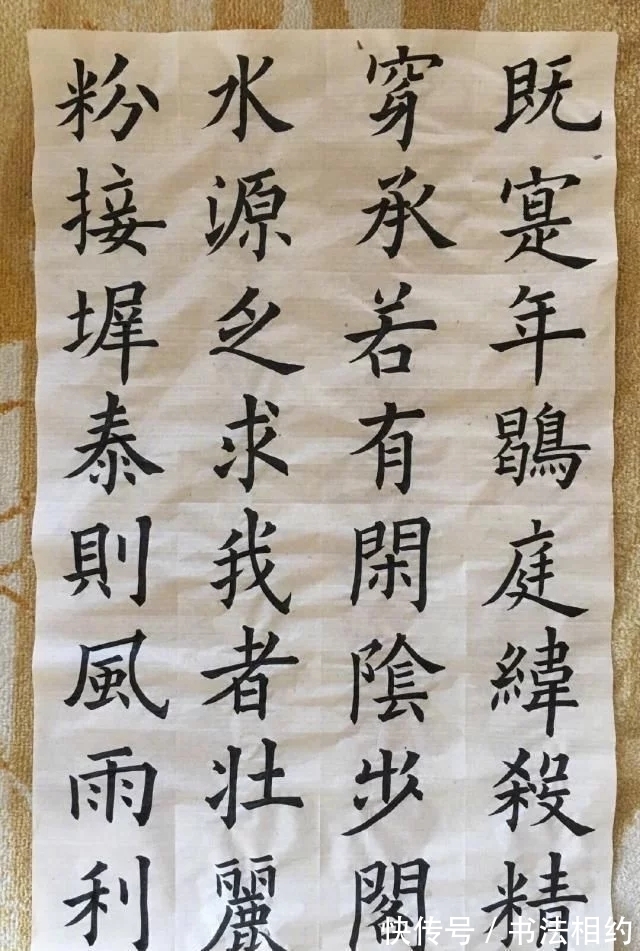 既寔年鶡庭緯殺精
穿承若有閑陰步閣
水源之求我者壯麗
粉接墀泰則風雨利
快传号 / 书法相约